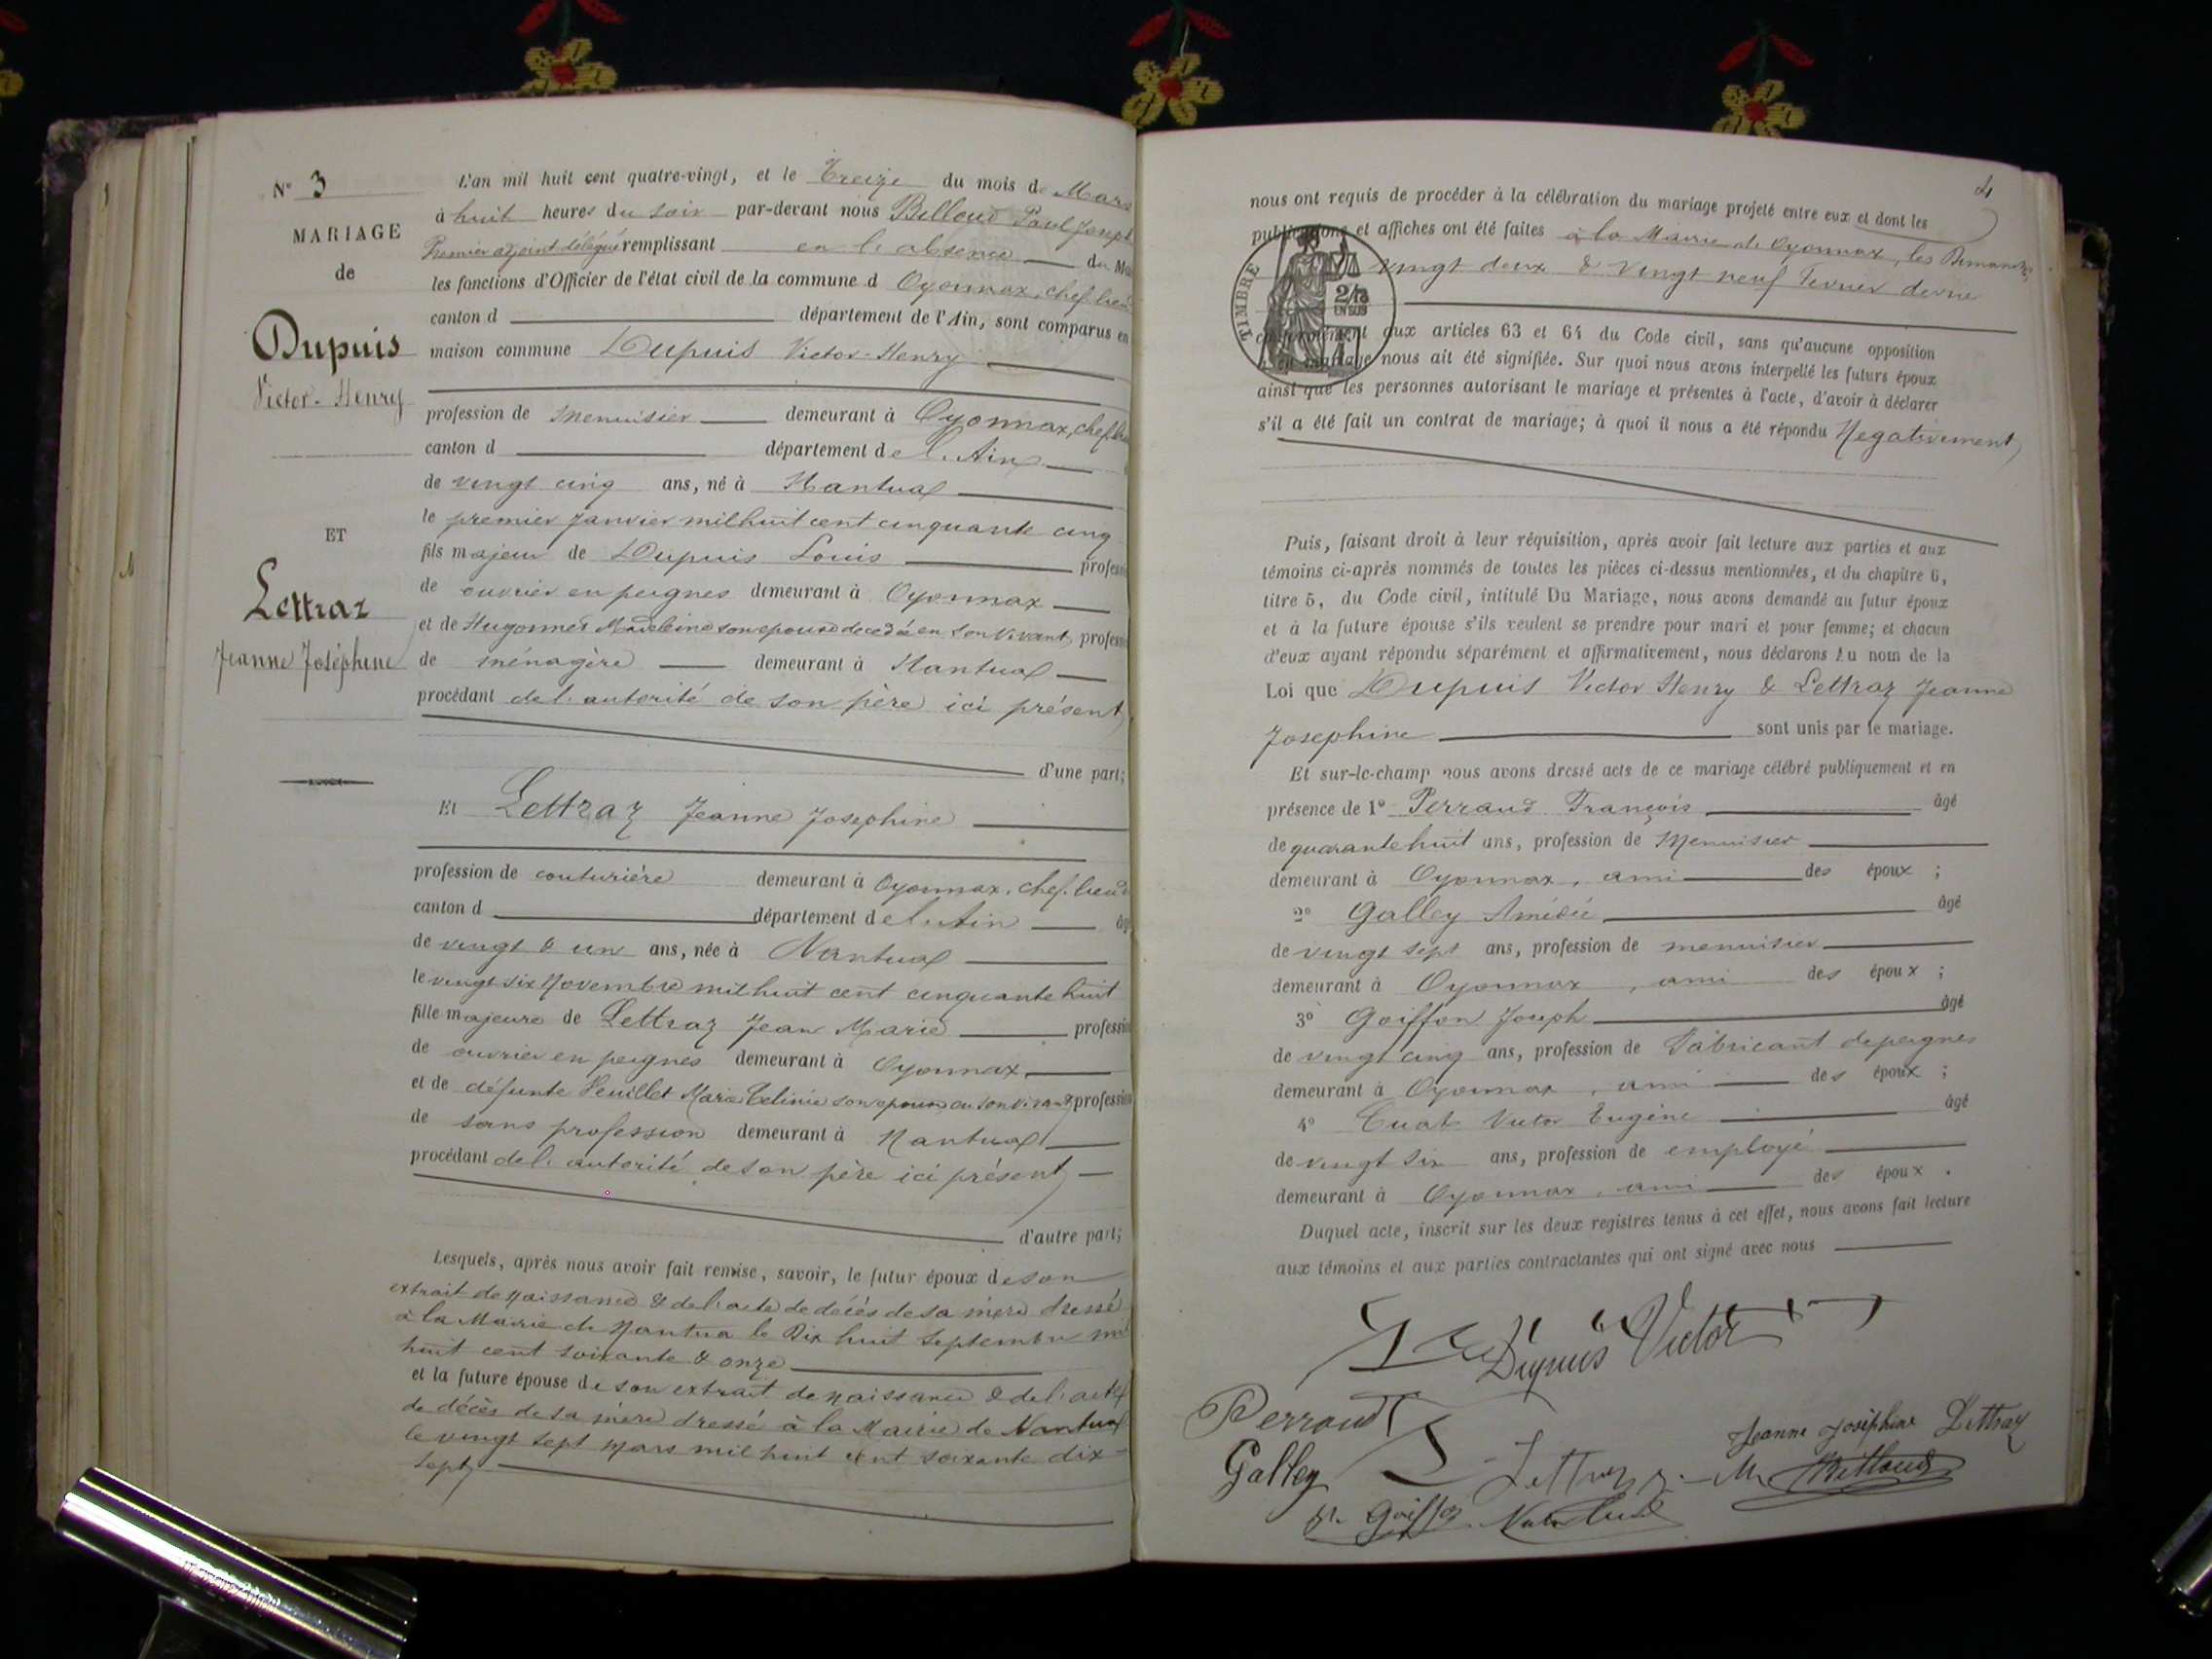 N° 3
MARIAGE
de
Dupuis
Victor-Henry
ET
Lettraz
Jeanne Joséphine
L'an mil huit cent quatre-vingt, et le Treize du mois de Mars
à huit heures du soir par-devant nous Belloud Paul Joseph
Premier adjoint délégué remplissant en l'absence du Ma
les fonctions d'Officier de l'état civil de la commune d Oyonnax, chef lieu
canton d département de l'Ain, sont comparus en
maison commune Dupuis Victor-Henry
profession de menuisier demeurant à Oyonnax, chef lieu
canton d département de l'Ain
de vingt cinq ans, né à Nantua
le premier Janvier mil huit cent cinquante cinq
fils majeur de Dupuis Louis profess
de ouvrier en peignes demeurant à Oyonnax
et de Hugonnet Madeleine son epouse decedée en son vivant, profess
de ménagère demeurant à Nantua
procédant de l'autorité de son père ici présent
d'une part;
Et Lettraz Jeanne Josephine
profession de couturière demeurant à Oyonnax, chef lieu d
canton d département de l'Ain âg
de vingt & un ans, née à Nantua
le vingt six Novembre mil huit cent cinquante huit
fille majeure de Lettraz Jean Marie profession
de ouvrier en peignes demeurant à Oyonnax
et de défunte Marie son epouse en son vivant, profession
de sans profession demeurant à Nantua
procédant de l'autorité de son père ici présent
d'autre part;
Lesquels, après nous avoir fait remise, savoir, le futur époux de son
extrait de naissance & de l'acte de décès de sa mère dressé
à la Mairie de Nantua le Dix huit Septembre mil
huit cent soixante & onze
et la future épouse de son extrait de naissance & de l'acte
de décès de sa mère dressé à la Mairie de Nantua
le vingt sept Mars mil huit cent soixante dix-
sept
4
nous ont requis de procéder à la célébration du mariage projeté entre eux et dont les
publications et affiches ont été faites à la Mairie de Oyonnax, les Dimanches
vingt deux & vingt neuf Fevrier dernier
TIMBRE
EN SUS
conformément aux articles 63 et 64 du Code civil, sans qu'aucune opposition
à ce mariage nous ait été signifiée. Sur quoi nous avons interpellé les futurs époux
ainsi que les personnes autorisant le mariage et présentes à l'acte, d'avoir à déclarer
s'il a été fait un contrat de mariage; à quoi il nous a été répondu Negativement
Puis, faisant droit à leur réquisition, après avoir fait lecture aux parties et aux
témoins ci-après nommés de toutes les pièces ci-dessus mentionnées, et du chapitre 6,
titre 5, du Code civil, intitulé Du Mariage, nous avons demandé au futur époux
et à la future épouse s'ils veulent se prendre pour mari et pour femme; et chacun
d'eux ayant répondu séparément et affirmativement, nous déclarons au nom de la
Loi que Dupuis Victor Henry & Lettraz Jeanne
Josephine sont unis par le mariage.
Et sur-le-champ nous avons dressé acte de ce mariage célébré publiquement et en
présence de 1° Perraud François âgé
de quarante huit ans, profession de Menuisier
demeurant à Oyonnax, ami des époux ;
2° Galley Amédée âgé
de vingt sept ans, profession de menuisier
demeurant à Oyonnax, ami des époux ;
3° Goiffon Joseph âgé
de vingt cinq ans, profession de Fabricant de peignes
demeurant à Oyonnax, ami des époux ;
4° Cuat Victor Eugène âgé
de vingt six ans, profession de employé
demeurant à Oyonnax, ami des époux .
Duquel acte, inscrit sur les deux registres tenus à cet effet, nous avons fait lecture
aux témoins et aux parties contractantes qui ont signé avec nous
Dupuis Victor
Perraud
Jeanne Joséphine Lettraz
Galley
Lettraz J. M Belloud
Goiffon